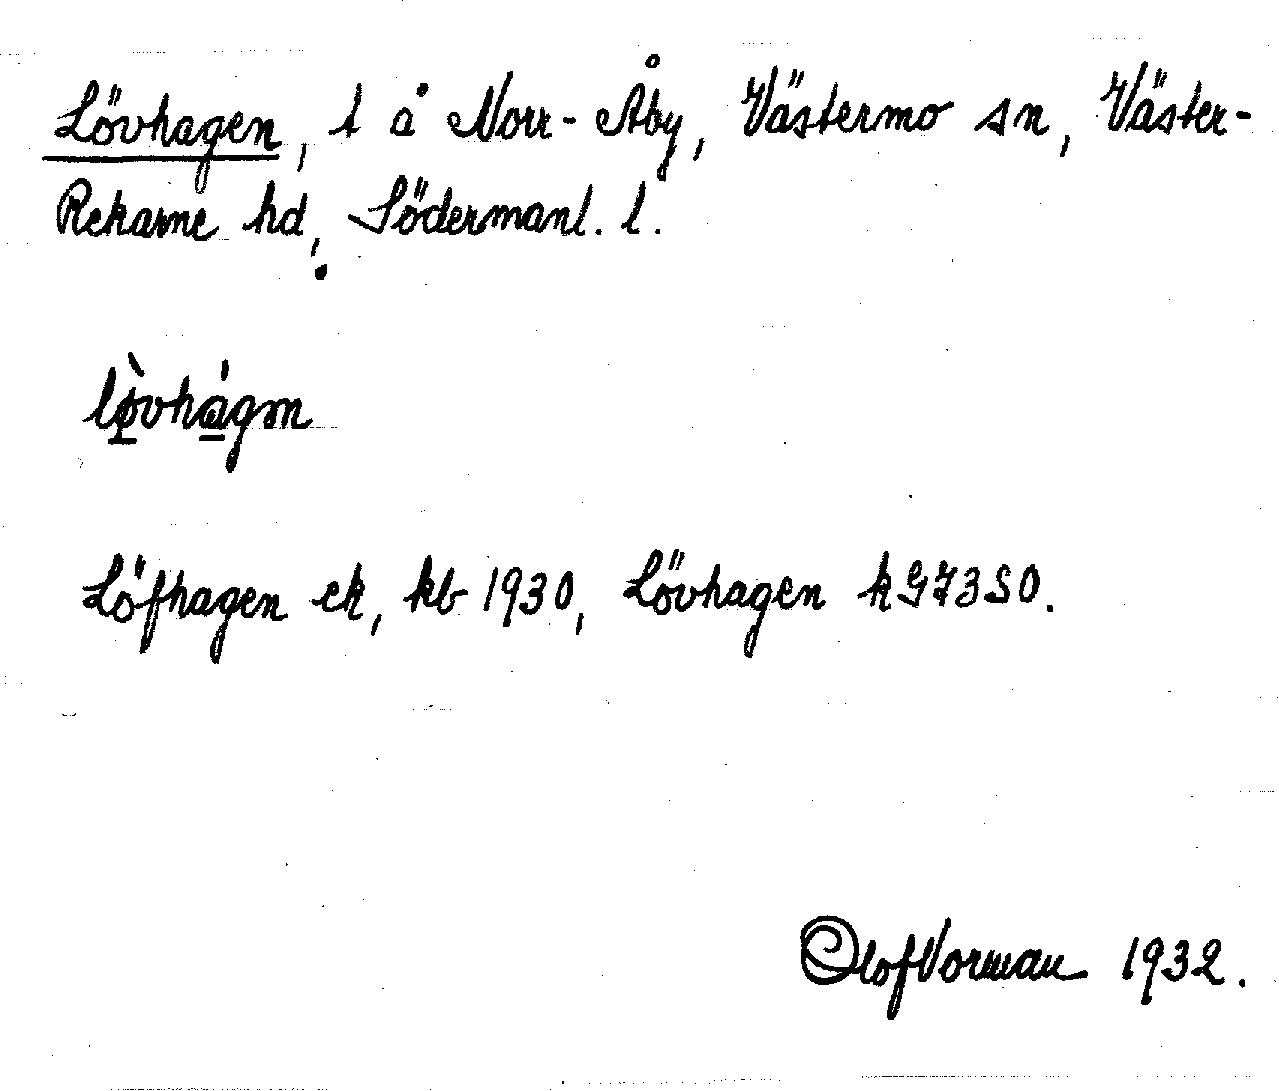 Lövhagen, t å Norr-Åby, Västermo sn, Väster-
Rekarne hd, Södermanl. l.
lø̀vhágɷn
Löfhagen ek, kb 1930, Lövhagen k G73SO.
Olof Vorman 1932.